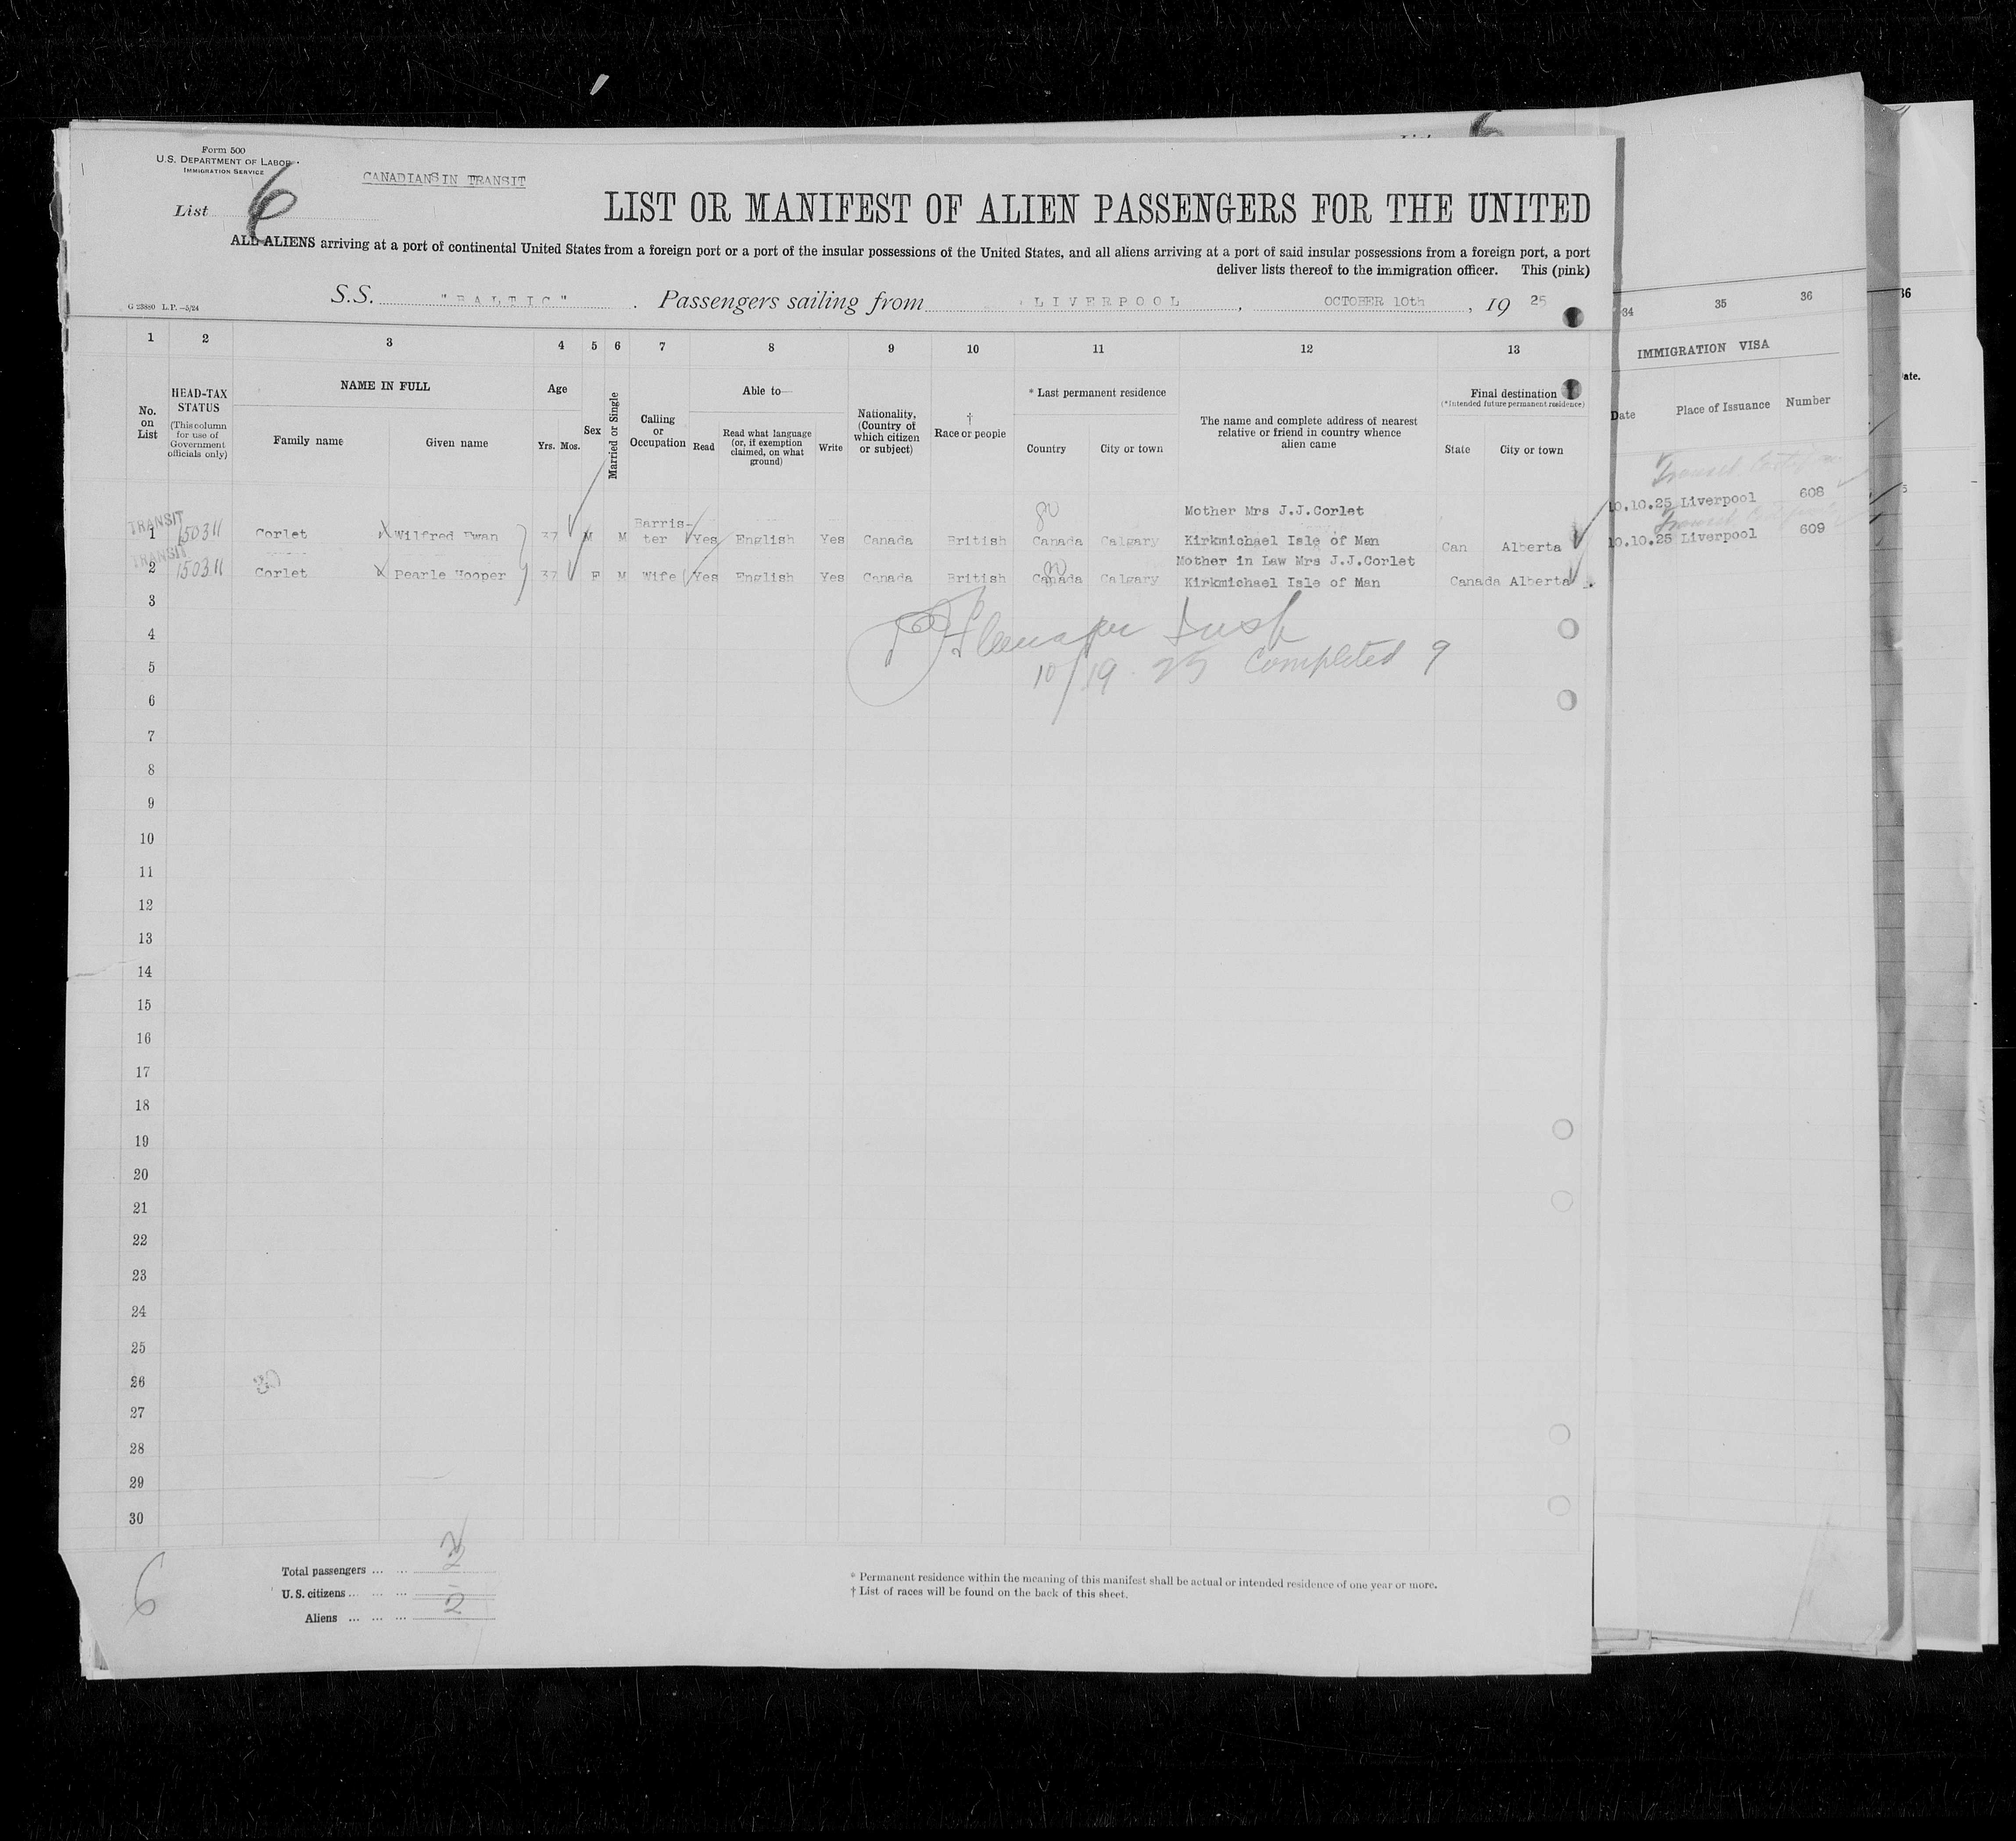 Form 500
U.S. DEPARTMENT OF LABOR
IMMIGRATION SERVICE
CANADIANS IN TRANSIT
List 6
LIST OR MANIFEST OF ALIEN PASSENGERS FOR THE UNITED
ALL ALIENS arriving at a port of continental United States from a foreign port or a port of the insular possessions of the United States, and all aliens arriving at a port of said insular possessions from a foreign port, a port
deliver lists thereof to the immigration officer. This (pink)
G 23880 L.P.—5/24
S.S. "BALTIC". Passengers sailing from LIVERPOOL, OCTOBER 10th, 19 25
1 2 3 4 5 6 7 8 9 10 11 12 13
34 35 36
36
No. on List
HEAD-TAX STATUS
(This column for use of Government officials only)
NAME IN FULL
Family name
Given name
Age
Yrs. Mos.
Sex
Married or Single
Calling or Occupation
Able to—
Read
Read what language (or, if exemption claimed, on what ground)
Write
Nationality, (Country of which citizen or subject)
† Race or people
* Last permanent residence
Country
City or town
The name and complete address of nearest relative or friend in country whence alien came
Final destination
(*Intended future permanent residence)
State
City or town
IMMIGRATION VISA
Date
Place of Issuance
Number
ate.
TRANSIT
1 150311 Corlet Wilfred Ewan 37 M M Barris-ter Yes English Yes Canada British Canada Calgary Mother Mrs J.J.Corlet Kirkmichael Isle of Man Can Alberta 10.10.25 Liverpool 608
TRANSIT
2 150311 Corlet Pearle Hooper 37 F M Wife Yes English Yes Canada British Canada Calgary Mother in Law Mrs J.J.Corlet Kirkmichael Isle of Man Canada Alberta 10.10.25 Liverpool 609
3
4
5
10/19 25 Completed 9
6
7
8
9
10
11
12
13
14
15
16
17
18
19
20
21
22
23
24
25
26
27
28
29
30
6
Total passengers ... ... 2
U.S. citizens ... ... ... –
Aliens ... ... ... 2
* Permanent residence within the meaning of this manifest shall be actual or intended residence of one year or more.
† List of races will be found on the back of this sheet.